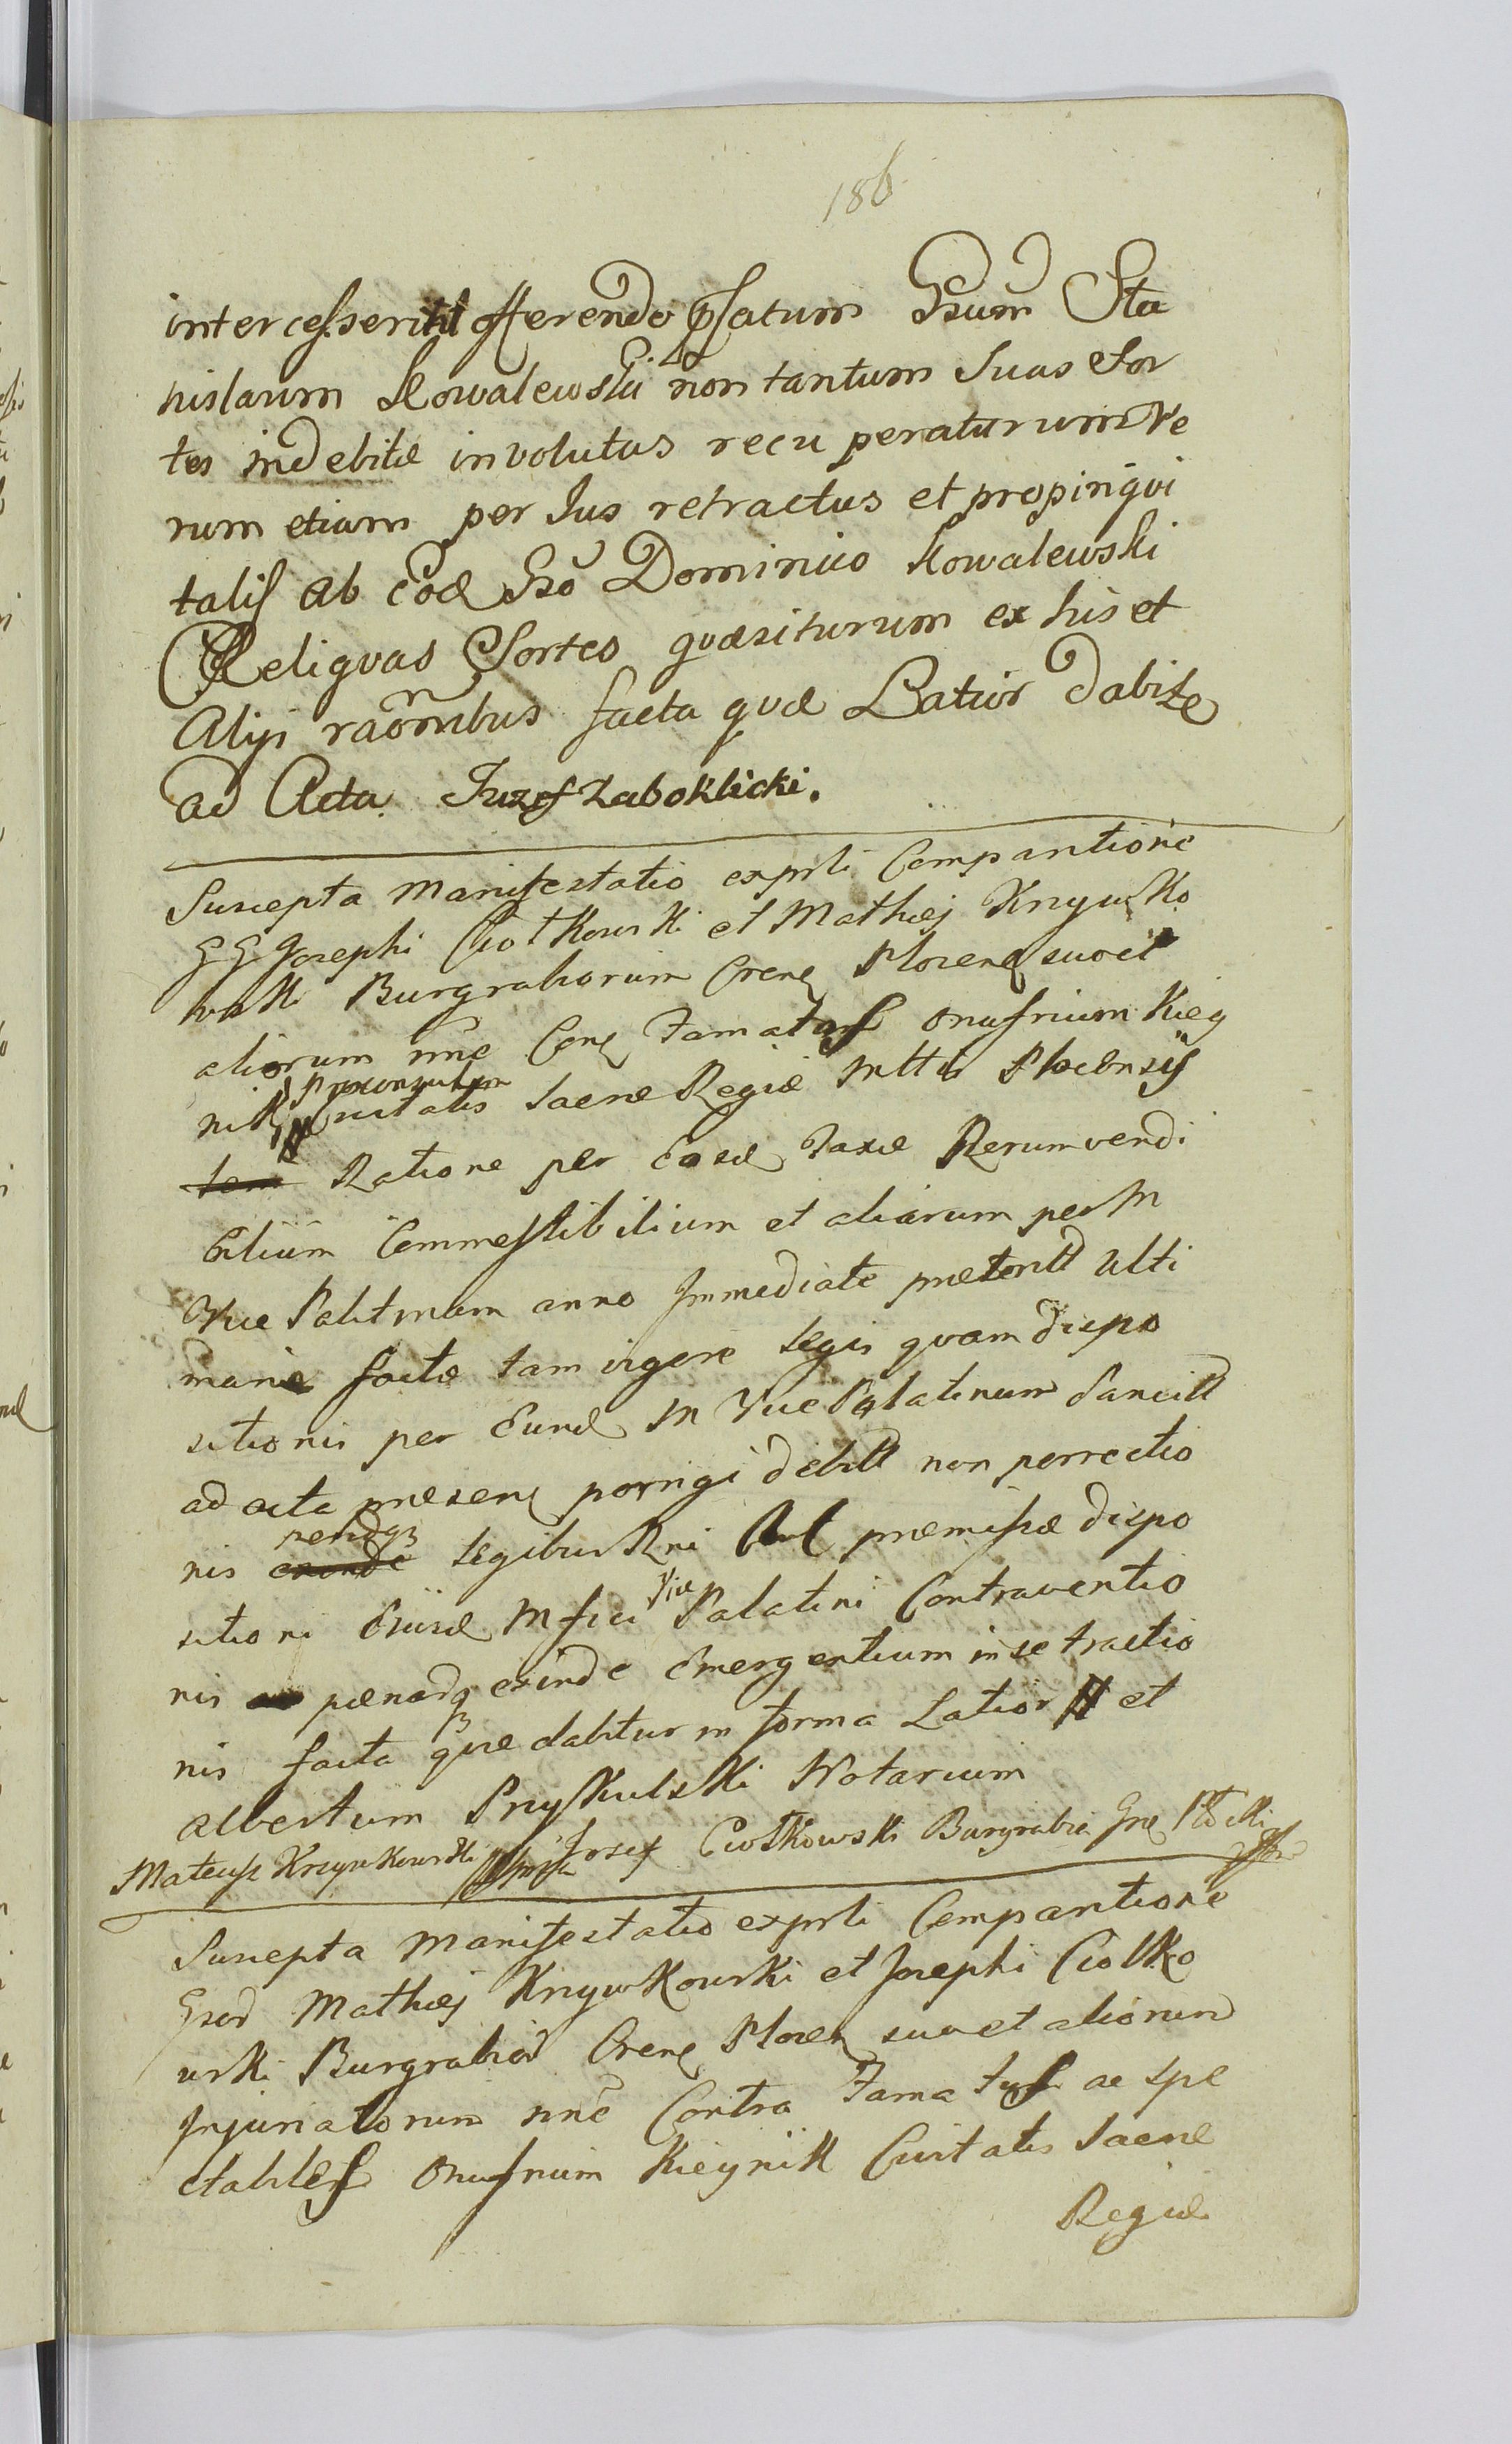 186
intercesserit offerendo pſatum Gsum Sta
nislaum Kowalewski non tantum Suas Sor
tes indebite involutas recuperaturum Ve
rum etiam per Jus retractus et propinqui
talis ab eod Gso Dominico Kowalewski
Reliquas Sortes quæsiturum ex his et
Alijs raõnibus facta quæ Latior dabitr
ad Acta. Juzef Zaboklicki.
Suscepta Manifestatio exprti Comparitione
GG Josephi Ciołkowski et Mathej Krzywko
wski Burgrabiorum Crens Plocens suo et
aliorum nne Conz Famatum Onufrium Kieg
nik Proconsulem Civitatis Sacræ Regiæ Mttis Plocensis
Ratione per Eosd Taxæ Rerum vendi
bilium Commestibilium et aliarum per M
Vice Palatinum anno Immediate præterito Ulti
mariæ factæ tam vigore Legis quam dispo
sitionis per Eund M Vice Palatinum Sancitt
ad acta præsens porrigi debitt non porrectio
nis Legibus Rni Aut præmissæ dispo
sitioni Eiusd Mfici Vice Palatini Contraventio
nis pænarq exinde Emergentium in se tractio
nis facta quæ dabitur in forma Latiori et
Albertum Przyskulski Notarium
Mateusz Krzywkowski Józef Ciołkowski Burgrabia Grz Płocki
Suscepta Manifestatio exprti Comparitione
Gsor Mathej Krzywkowski et Josephi Ciołko
wski Burgrabior Crens Plocen suo et aliorum
Injuriatorum nne Contra Famatum ac Spe
ctabilem Onufrium Kieynik Civitatis Sacræ
Regiæ